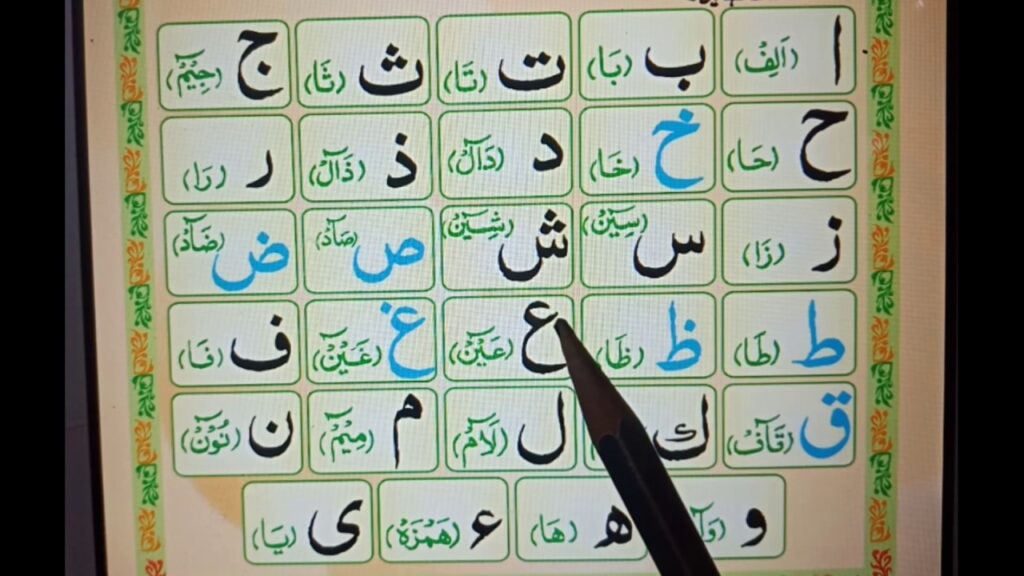 ا (اَلِفْ) ب (بَا) ت (تَا) ث (ثَا) ج (جِيْمْ)
ح (حَا) خ (خَا) د (دَالْ) ذ (ذَالْ) ر (رَا)
ز (زَا) س (سِيْنْ) ش (شِيْنْ) ص (صَادْ) ض (ضَادْ)
ط (طَا) ظ (ظَا) ع (عَيْنْ) غ (غَيْنْ) ف (فَا)
ق (قَافْ) ك ل (لَامْ) م (مِيْمْ) ن (نُوْنْ)
و ه (هَا) ء (هَمْزَهْ) ی (يَا)